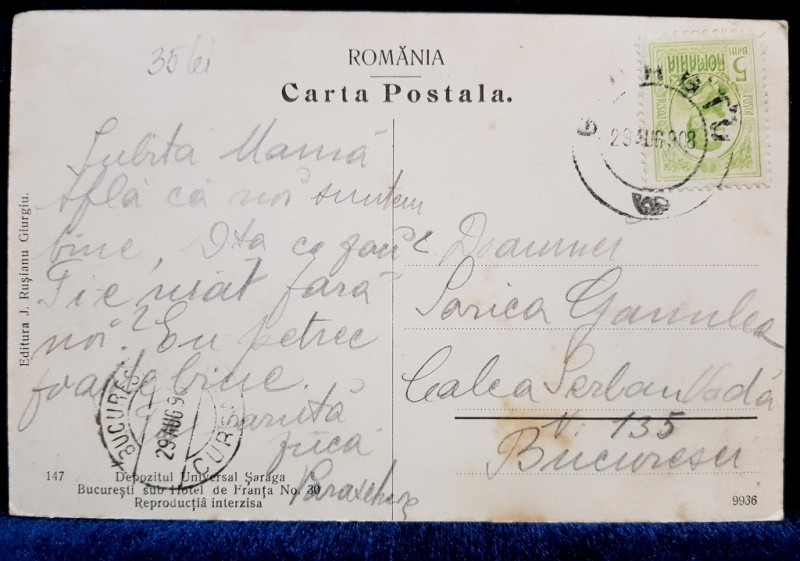 35 lei
ROMÂNIA
Carta Postala.
5
BANI
ROMANIA
POSTA
29 AUG 908
Iubita Mamă
Află că noi suntem
bine, D-ta ce faci
Ție urât fără
noi? Eu petrec
foarte bine.
sărută
fiica
Paraschiva
Doamnei
Sarica
Calea Serban Vodă
N. 135
Bucuresci
BUCUREȘ
29 AUG 90
CUREȘ
Editura J. Rușianu Giurgiu.
147
Depozitul Universal Șaraga
București sub Hotel de Franța No. 30
Reproducția interzisa
9936